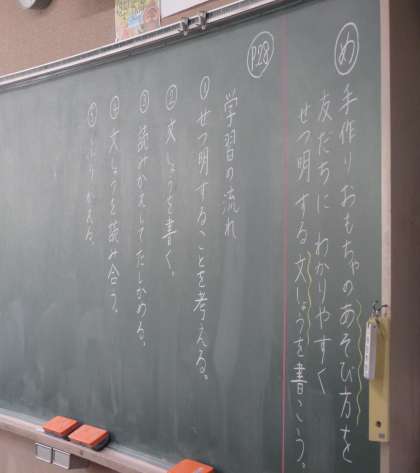 め
手作りおもちゃのあそび方を
友だちにわかりやすく
せつ明する文しょうを書こう。
P.28
学習の流れ
①せつ明することを考える。
②文しょうを書く。
③読みかえしてたしかめる。
④文しょうを読み合う。
⑤ふりかえる。